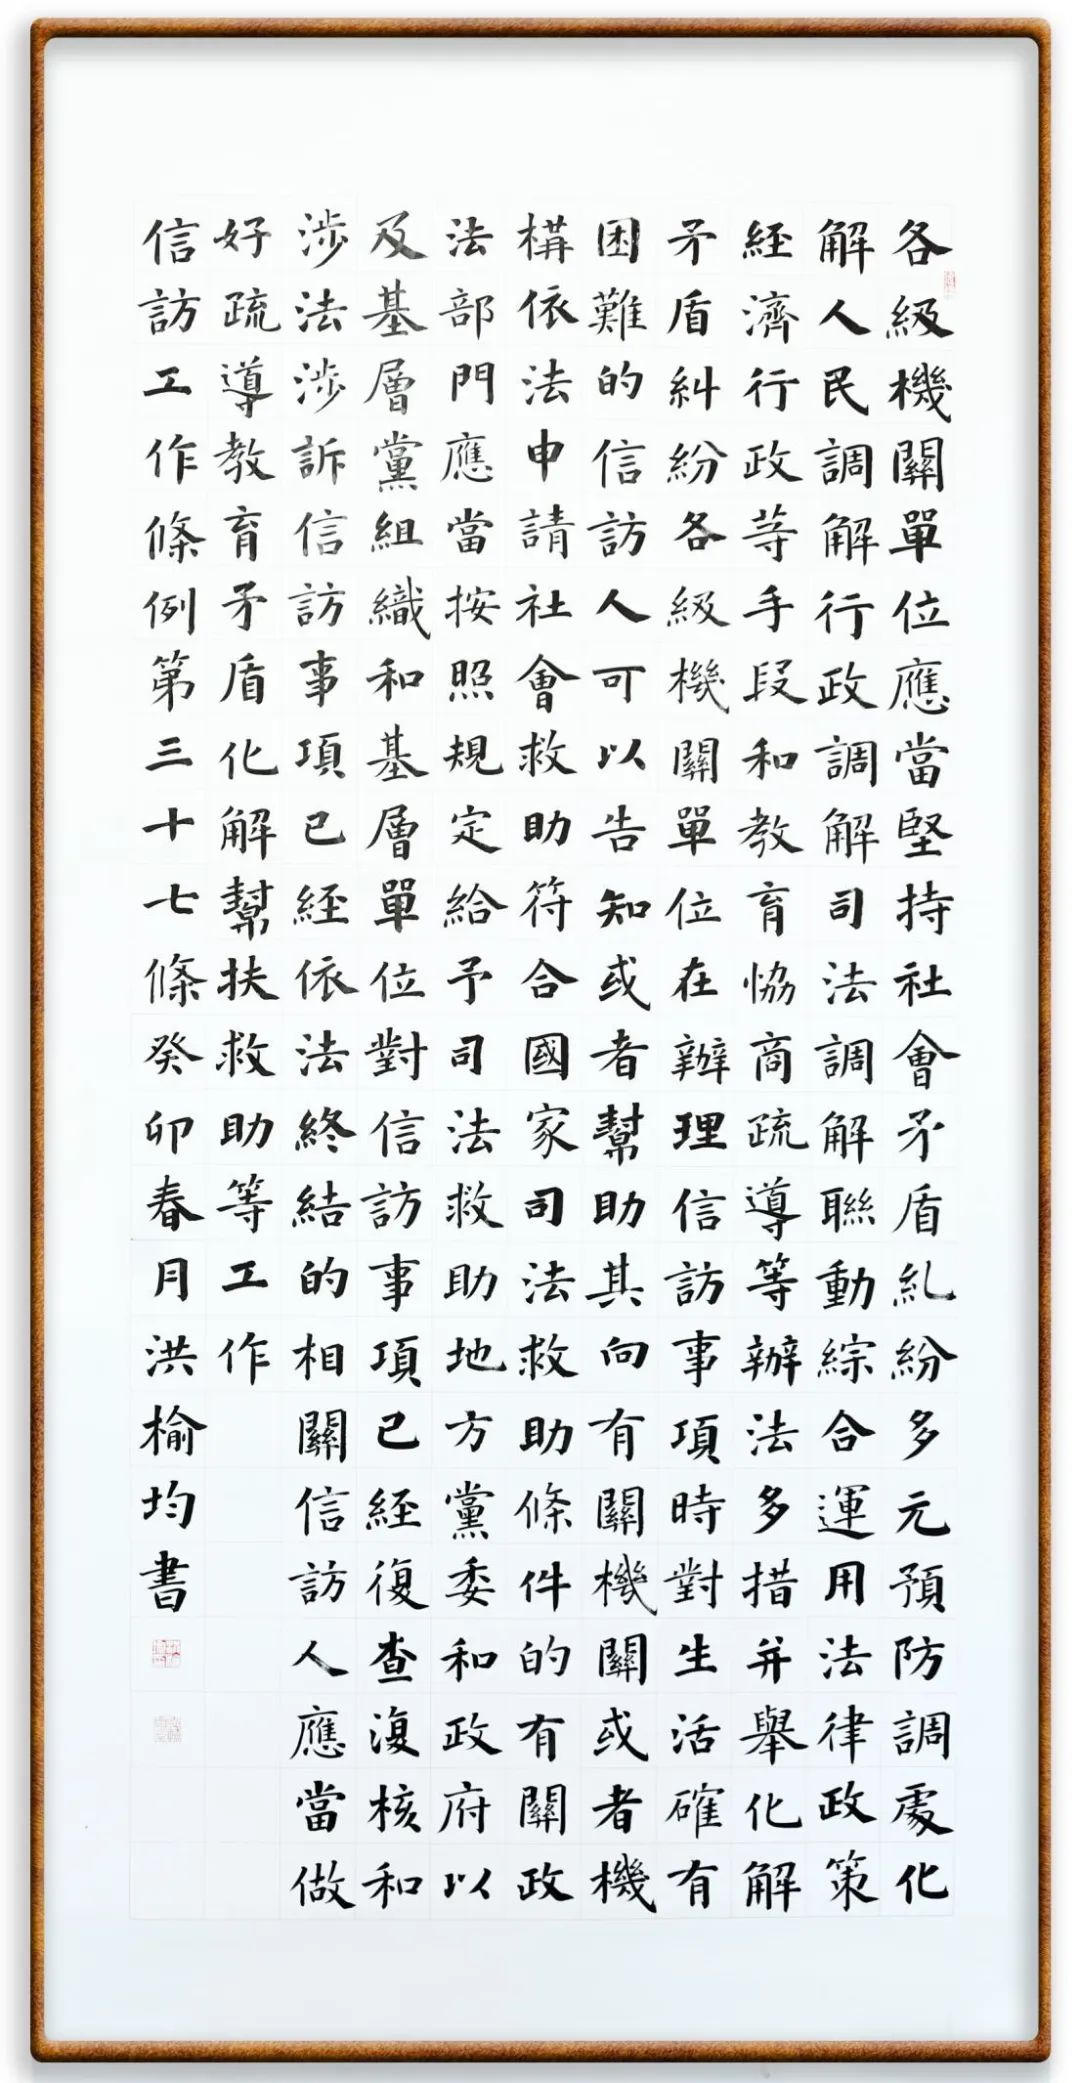 各級機關單位應當堅持社會矛盾糺紛多元預防調處化
解人民調解行政調解司法調解聯動綜合運用法律政策
経濟行政等手段和教育協商疏導等辦法多措并舉化解
矛盾糾紛各級機關單位在辦理信訪事項時對生活確有
困難的信訪人可以告知或者幫助其向有關機關或者機
構依法申請社會救助符合國家司法救助條件的有關政
法部門應當按照規定給予司法救助地方黨委和政府以
及基層黨組織和基層單位對信訪事項已経復查復核和
涉法涉訴信訪事項已経依法終結的相關信訪人應當做
好疏導教育矛盾化解幫扶救助等工作
信訪工作條例第三十七條癸卯春月洪榆均書